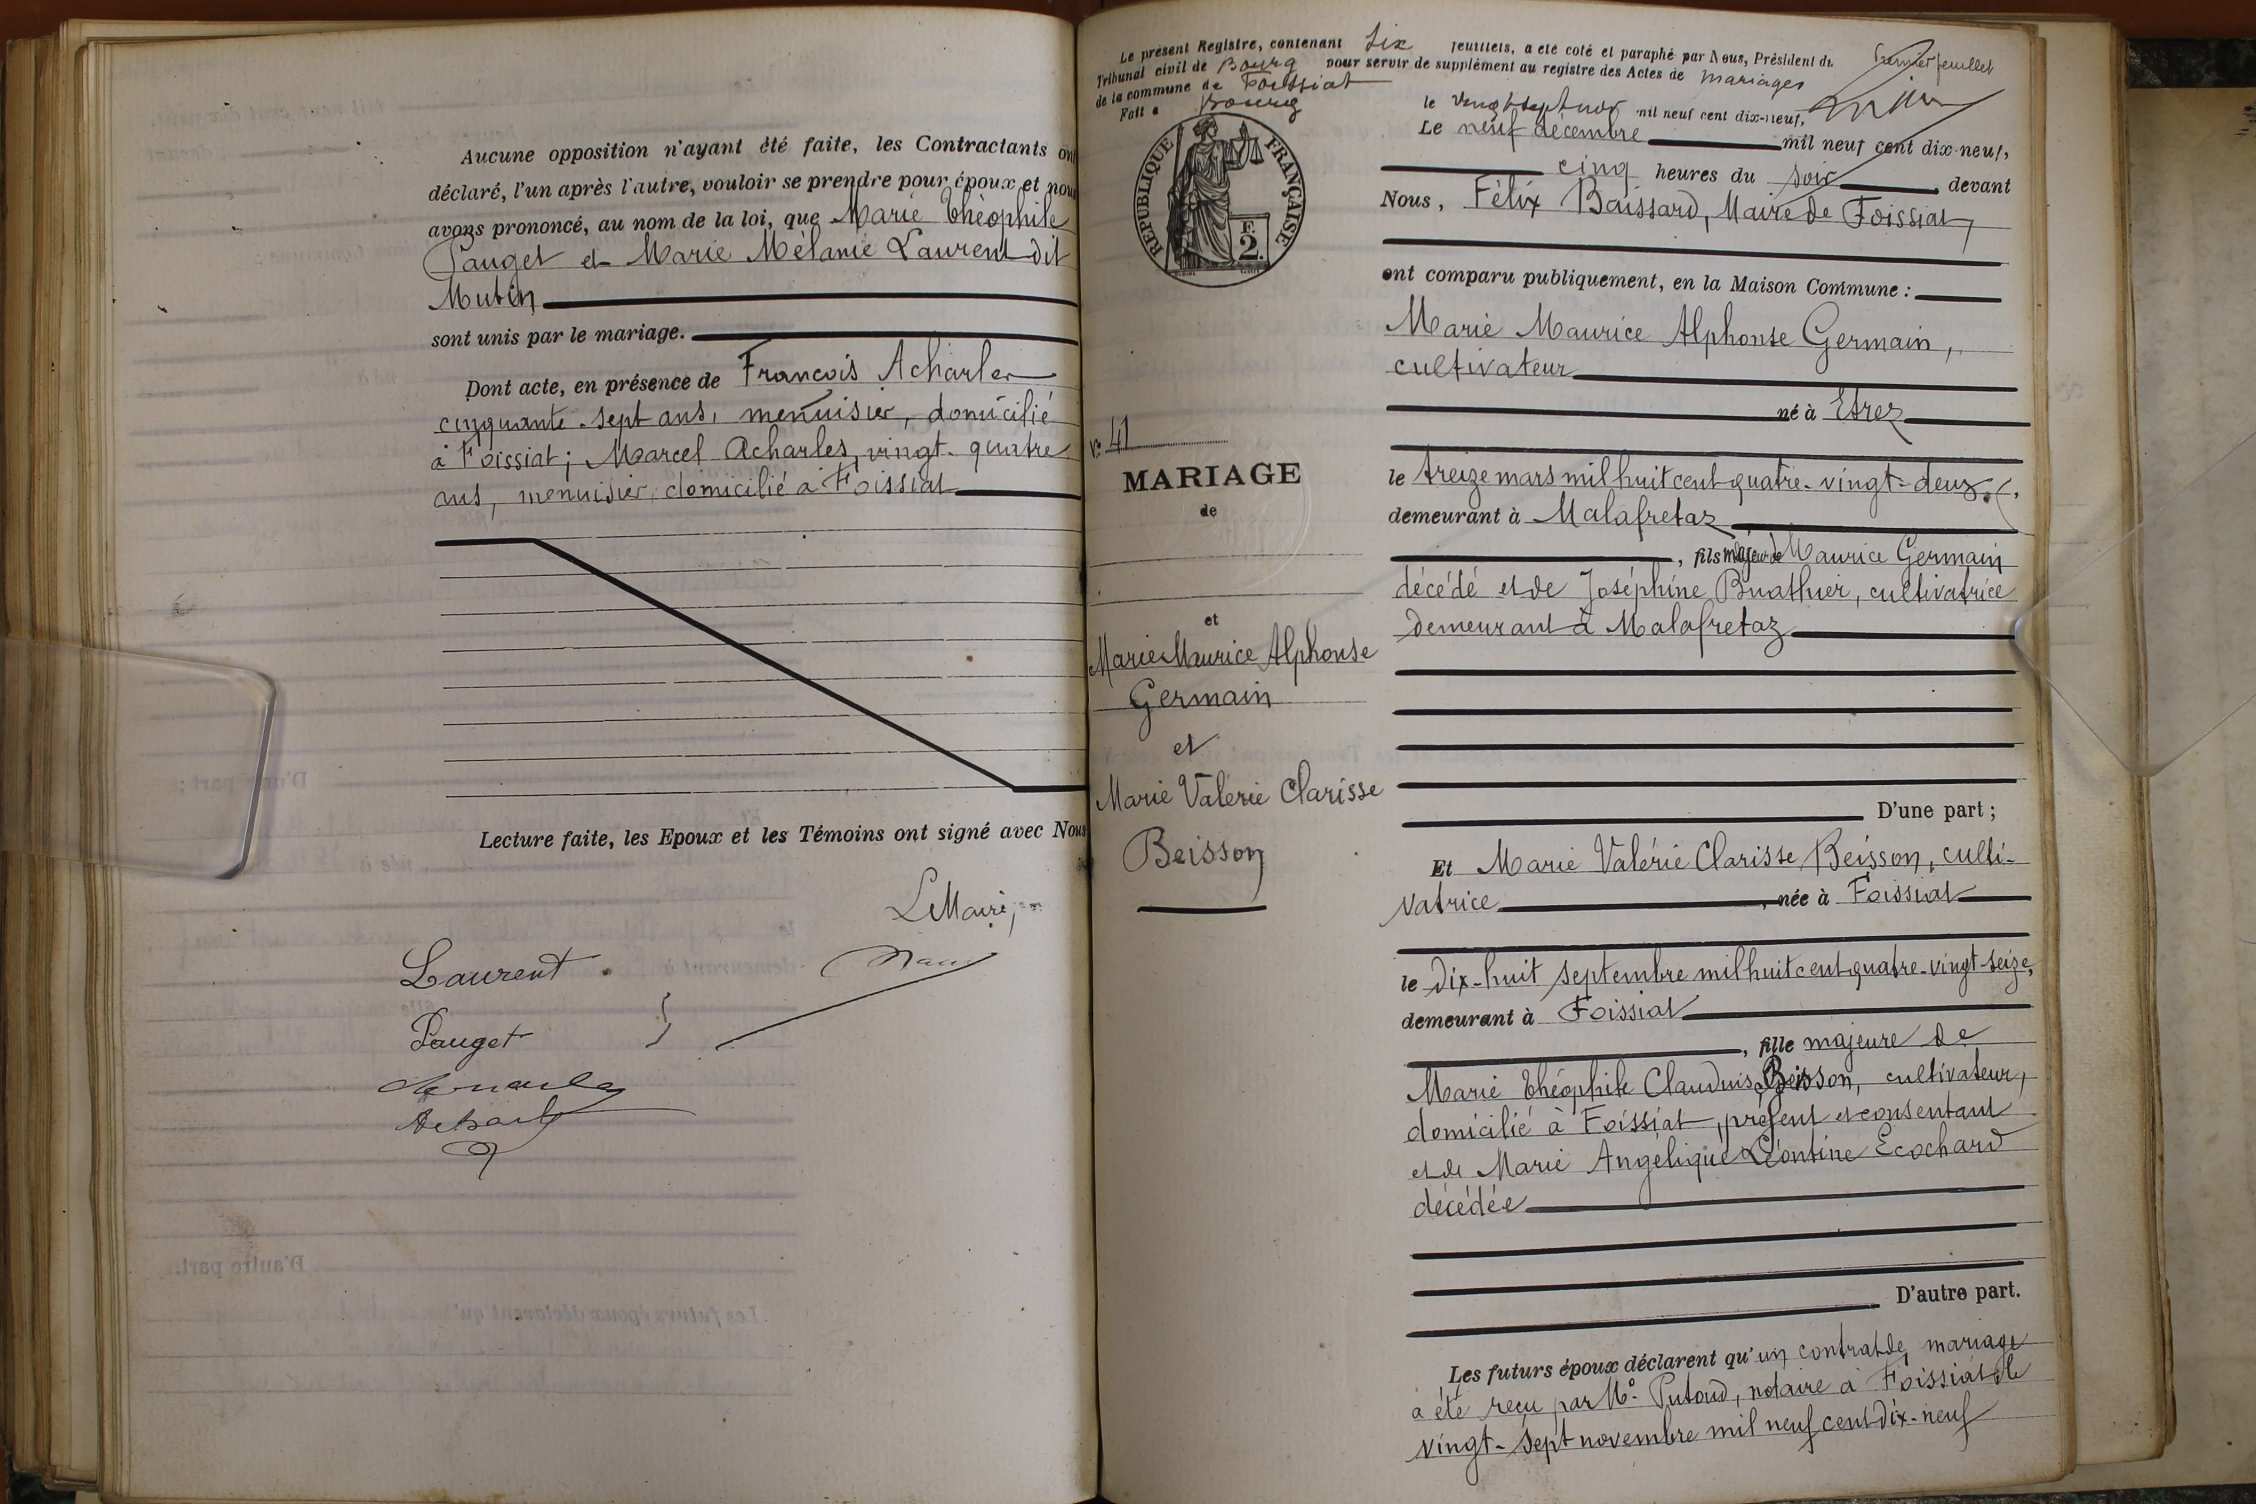 Aucune opposition n'ayant été faite, les Contractants ont
déclaré, l'un après l'autre, vouloir se prendre pour époux et nous
avons prononcé, au nom de la loi, que Marie Théophile
Pauget et Marie Mélanie Laurent dit
Mutin
sont unis par le mariage.
Dont acte, en présence de François Acharles
cinquante-sept ans, menuisier, domicilié
à Foissiat; Marcel Acharles, vingt-quatre
ans, menuisier, domicilié à Foissiat
Lecture faite, les Epoux et les Témoins ont signé avec Nous
Le Maire,
Laurent
Pauget
Le présent Registre, contenant six feuillets, a été coté et paraphé par Nous, Président du
Tribunal civil de Bourg pour servir de supplément au registre des Actes de mariages
de la commune de Foissiat
Fait à Bourg le vingt sept mil neuf cent dix-neuf,
Premier feuillet
RÉPUBLIQUE FRANÇAISE
F.
2.
N° 41
MARIAGE
de
et
Marie Maurice Alphonse
Germain
et
Marie Valérie Clarisse
Beisson
Le neuf décembre mil neuf cent dix-neuf,
cinq heures du soir, devant
Nous, Félix Baissard, Maire de Foissiat,
ont comparu publiquement, en la Maison Commune :
Marie Maurice Alphonse Germain,
cultivateur
né à Etrez
le treize mars mil huit cent quatre-vingt-deux,
demeurant à Malafretaz
, fils majeur de Maurice Germain
décédé et de Joséphine Buathier, cultivatrice
demeurant à Malafretaz
D'une part ;
Et Marie Valérie Clarisse Beisson, culti-
vatrice, née à Foissiat
le dix-huit septembre mil huit cent quatre-vingt-seize,
demeurant à Foissiat
, fille majeure de
Marie Théophile Claudius Beisson, cultivateur,
domicilié à Foissiat, présent et consentant
et de Marie Angélique Léontine Ecochard
décédée
D'autre part.
Les futurs époux déclarent qu'un contrat de mariage
a été reçu par Me Putoud, notaire à Foissiat le
vingt-sept novembre mil neuf cent dix-neuf